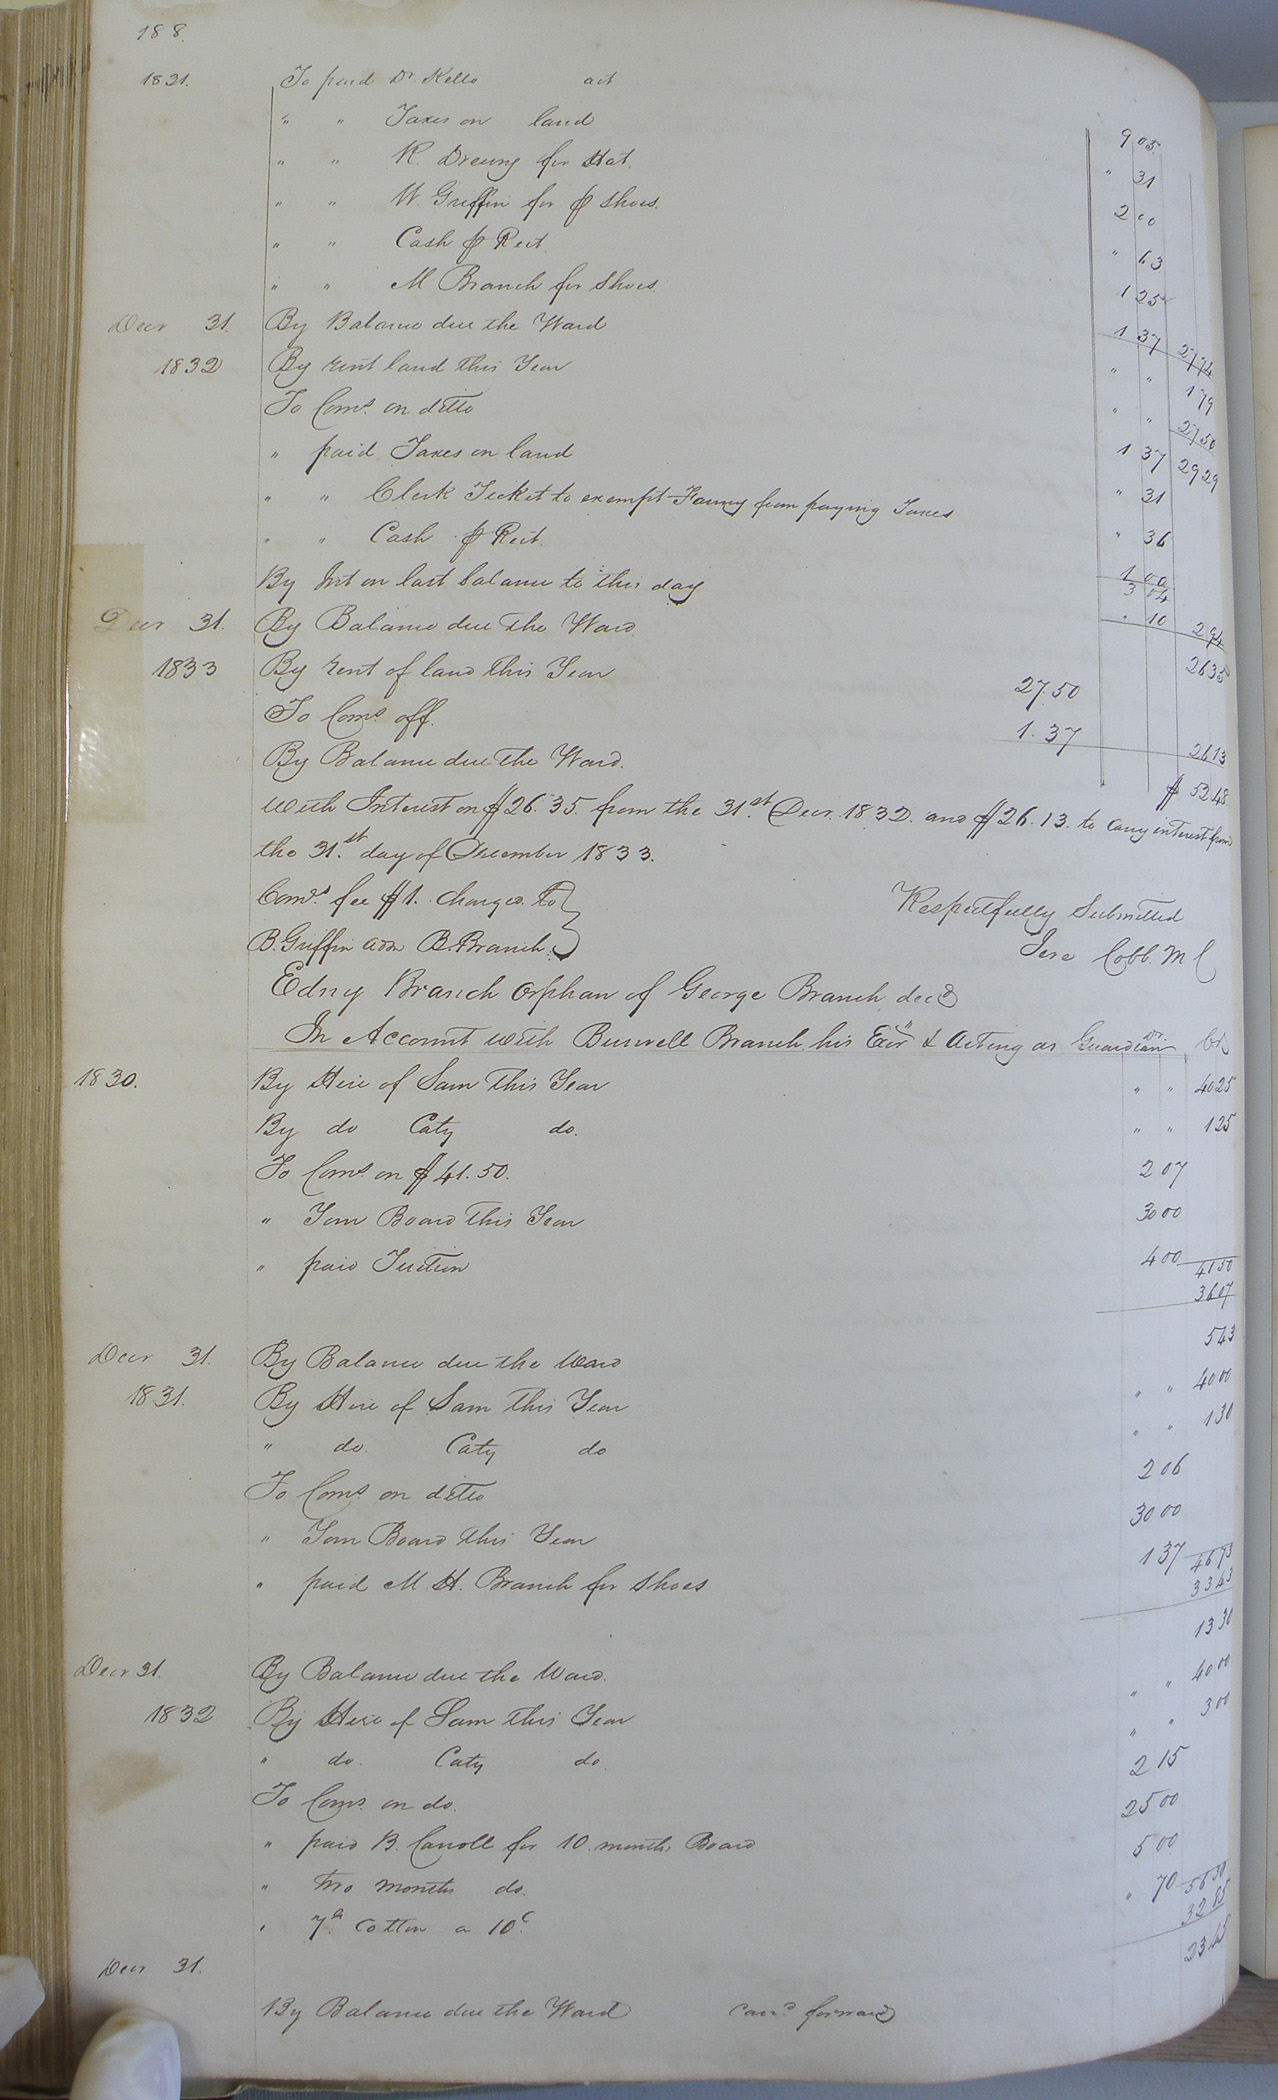 188.
1831. To paid Dr. Kello act 9 05
" " Taxes on land " 31
" " R. Drewry for Hat. 2 00
" " W. Griffin for pr shoes. " 63
" " Cash pr Rect. 1 25
" " M Branch for Shoes. 1 37 27 74
Decr 31. By Balance due the Ward " " 1 79
1832 By rent land this Year " " 27 50
To Coms. on ditto 1 37 29 29
" paid Taxes on land " 31
" " Clerk Ticket to exempt Fanny from paying Taxes " 36
" " Cash pr Rect. 1 00
3 04
By Int on last balance to this day " 10 2 94
Decr 31. By Balance due the Ward. 26 35
1833 By rent of land this Year 27.50
To Coms off. 1.37 26 13
By Balance due the Ward. $ 52 48
with Interest on $26.35. from the 31st. Decr. 1832. and $26.13. to carry interest from
the 31.st day of December 1833.
Comrs. fee $1. charged to
B. Griffin adm B. Branch.
Respectfully Submitted
Jere Cobb. M C
Edny Branch Orphan of George Branch decd
In Account with Burwell Branch his Exor & Acting as Guardian Dr. Cr.
1830. By Hire of Sam this Year " " 40 25
By do Caty do. " " 1 25
To Coms. on $41.50. 2 07
" Your Board this Year 30 00
" paid Tuition 4 00 41 50
36 07
Decr 31. By Balance due the Ward 5 43
1831. By Hire of Sam this Year " " 40 00
" do. Caty do " " 1 30
To Coms. on ditto 2 06
" Your Board this Year 30 00
" paid M. H. Branch for Shoes 1 37 46 73
33 43
Decr 31. By Balance due the Ward. 13 30
1832 By Hire of Sam this Year " " 40 00
" do. Caty do. " " 3 00
To Coms. on do. 2 15
" paid B. Carroll for 10 months Board 25 00
" two months do. 5 00
" 7lb cotton a 10c. " 70 56 30
32 85
Decr 31. 23 45
By Balance due the Ward card. forward